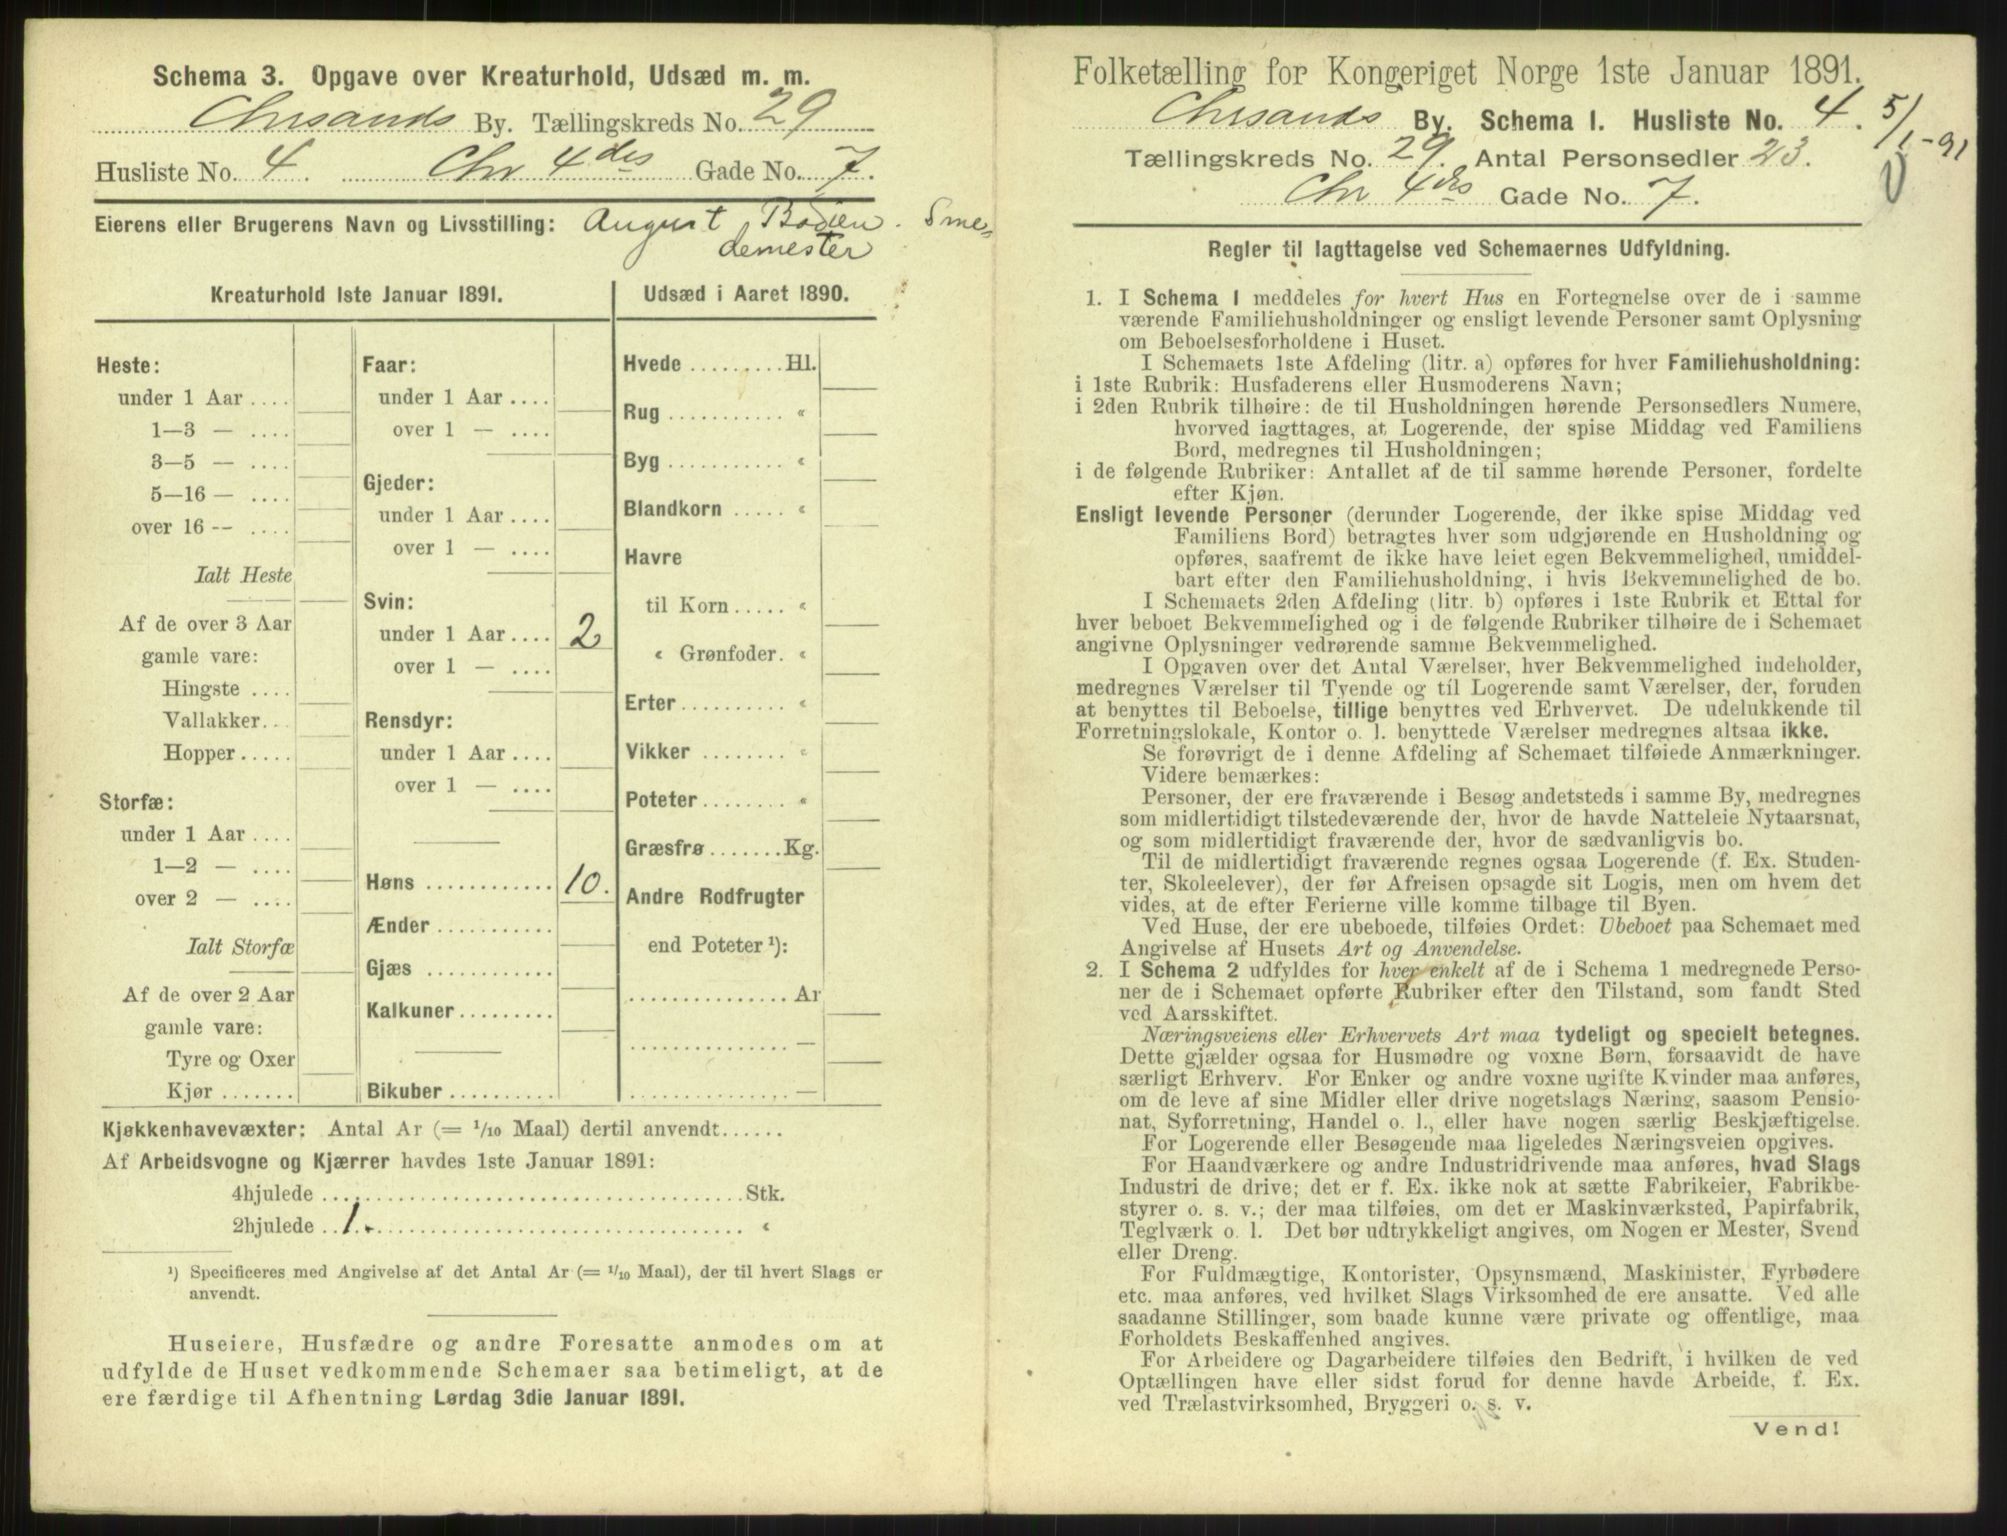 Schema 3. Opgave over Kreaturhold, Udsæd m. m.
Chrsands By. Tællingskreds No. 29
Husliste No. 4. Chr 4des Gade No. 7.
Eierens eller Brugerens Navn og Livsstilling: August Bodien. Sme-
demester
Kreaturhold 1ste Januar 1891.
Heste:
under 1 Aar ....
1—3 — ....
3—5 — ....
5—16 — ....
over 16 — ....
Ialt Heste
Af de over 3 Aar
gamle vare:
Hingste ....
Vallakker...
Hopper.....
Storfæ:
under 1 Aar ....
1—2 — ....
over 2 — ....
Ialt Storfæ
Af de over 2 Aar
gamle vare:
Tyre og Oxer
Kjør .......
Faar:
under 1 Aar ....
over 1 — ....
Gjeder:
under 1 Aar ....
over 1 — ....
Svin:
under 1 Aar .... 2
over 1 — ....
Rensdyr:
under 1 Aar ....
over 1 — ....
Høns ............ 10.
Ænder ...........
Gjæs ............
Kalkuner.........
Bikuber ..........
Udsæd i Aaret 1890.
Hvede .........Hl.
Rug ........... «
Byg ........... «
Blandkorn ..... «
Havre
til Korn ..... «
« Grønfoder. «
Erter .......... «
Vikker ........ «
Poteter ........ «
Græsfrø .......Kg.
Andre Rodfrugter
end Poteter ¹):
............... Ar
............... —
............... —
Kjøkkenhavevæxter: Antal Ar (= 1/10 Maal) dertil anvendt......
Af Arbeidsvogne og Kjærrer havdes 1ste Januar 1891:
4hjulede ........................................Stk.
2hjulede .. 1. ........................................ «
¹) Specificeres med Angivelse af det Antal Ar (= 1/10 Maal), der til hvert Slags er
anvendt.
Huseiere, Husfædre og andre Foresatte anmodes om at
udfylde de Huset vedkommende Schemaer saa betimeligt, at de
ere færdige til Afhentning Lørdag 3die Januar 1891.
Folketælling for Kongeriget Norge 1ste Januar 1891.
Chrsands By. Schema I. Husliste No. 4. 5/1-91
Tællingskreds No. 29. Antal Personsedler 23.
Chr 4des Gade No. 7.
Regler til Iagttagelse ved Schemaernes Udfyldning.
1. I Schema I meddeles for hvert Hus en Fortegnelse over de i samme
værende Familiehusholdninger og ensligt levende Personer samt Oplysning
om Beboelsesforholdene i Huset.
I Schemaets 1ste Afdeling (litr. a) opføres for hver Familiehusholdning:
i 1ste Rubrik: Husfaderens eller Husmoderens Navn;
i 2den Rubrik tilhøire: de til Husholdningen hørende Personsedlers Numere,
hvorved iagttages, at Logerende, der spise Middag ved Familiens
Bord, medregnes til Husholdningen;
i de følgende Rubriker: Antallet af de til samme hørende Personer, fordelte
efter Kjøn.
Ensligt levende Personer (derunder Logerende, der ikke spise Middag ved
Familiens Bord) betragtes hver som udgjørende en Husholdning og
opføres, saafremt de ikke have leiet egen Bekvemmelighed, umiddel-
bart efter den Familiehusholdning, i hvis Bekvemmelighed de bo.
I Schemaets 2den Afdeling (litr. b) opføres i 1ste Rubrik et Ettal for
hver beboet Bekvemmelighed og i de følgende Rubriker tilhøire de i Schemaet
angivne Oplysninger vedrørende samme Bekvemmelighed.
I Opgaven over det Antal Værelser, hver Bekvemmelighed indeholder,
medregnes Værelser til Tyende og til Logerende samt Værelser, der, foruden
at benyttes til Beboelse, tillige benyttes ved Erhvervet. De udelukkende til
Forretningslokale, Kontor o. l. benyttede Værelser medregnes altsaa ikke.
Se forøvrigt de i denne Afdeling af Schemaet tilføiede Anmærkninger.
Videre bemærkes:
Personer, der ere fraværende i Besøg andetsteds i samme By, medregnes
som midlertidigt tilstedeværende der, hvor de havde Natteleie Nytaarsnat,
og som midlertidigt fraværende der, hvor de sædvanligvis bo.
Til de midlertidigt fraværende regnes ogsaa Logerende (f. Ex. Studen-
ter, Skoleelever), der før Afreisen opsagde sit Logis, men om hvem det
vides, at de efter Ferierne ville komme tilbage til Byen.
Ved Huse, der ere ubeboede, tilføies Ordet: Ubeboet paa Schemaet med
Angivelse af Husets Art og Anvendelse.
2. I Schema 2 udfyldes for hver enkelt af de i Schema 1 medregnede Perso-
ner de i Schemaet opførte Rubriker efter den Tilstand, som fandt Sted
ved Aarsskiftet.
Næringsveiens eller Erhvervets Art maa tydeligt og specielt betegnes.
Dette gjælder ogsaa for Husmødre og voxne Børn, forsaavidt de have
særligt Erhverv. For Enker og andre voxne ugifte Kvinder maa anføres,
om de leve af sine Midler eller drive nogetslags Næring, saasom Pensio-
nat, Syforretning, Handel o. l., eller have nogen særlig Beskjæftigelse.
For Logerende eller Besøgende maa ligeledes Næringsveien opgives.
For Haandværkere og andre Industridrivende maa anføres, hvad Slags
Industri de drive; det er f. Ex. ikke nok at sætte Fabrikeier, Fabrikbe-
styrer o. s. v.; der maa tilføies, om det er Maskinværksted, Papirfabrik,
Teglværk o. l. Det bør udtrykkeligt angives, om Nogen er Mester, Svend
eller Dreng.
For Fuldmægtige, Kontorister, Opsynsmænd, Maskinister, Fyrbødere
etc. maa anføres, ved hvilket Slags Virksomhed de ere ansatte. Ved alle
saadanne Stillinger, som baade kunne være private og offentlige, maa
Forholdets Beskaffenhed angives.
For Arbeidere og Dagarbeidere tilføies den Bedrift, i hvilken de ved
Optællingen have eller sidst forud for denne havde Arbeide, f. Ex.
ved Trælastvirksomhed, Bryggeri o. s. v.
Vend!